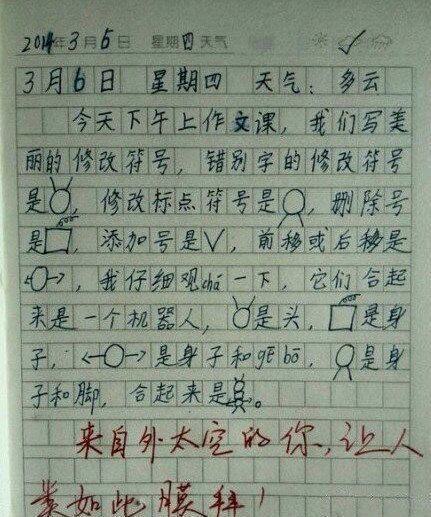 2014年3月5日 星期四天气
3月6日 星期四 天气：多云
今天下午上作文课，我们写美
丽的修改符号，错别字的修改符号
是，修改标点符号是，删除号
是，添加号是∨，前移或后移是
，我仔细观chá一下，它们合起
来是一个机器人，是头，是身
子，是身子和gē bō，是身
子和脚，合起来是。
来自外太空的你，让人
类如此膜拜！